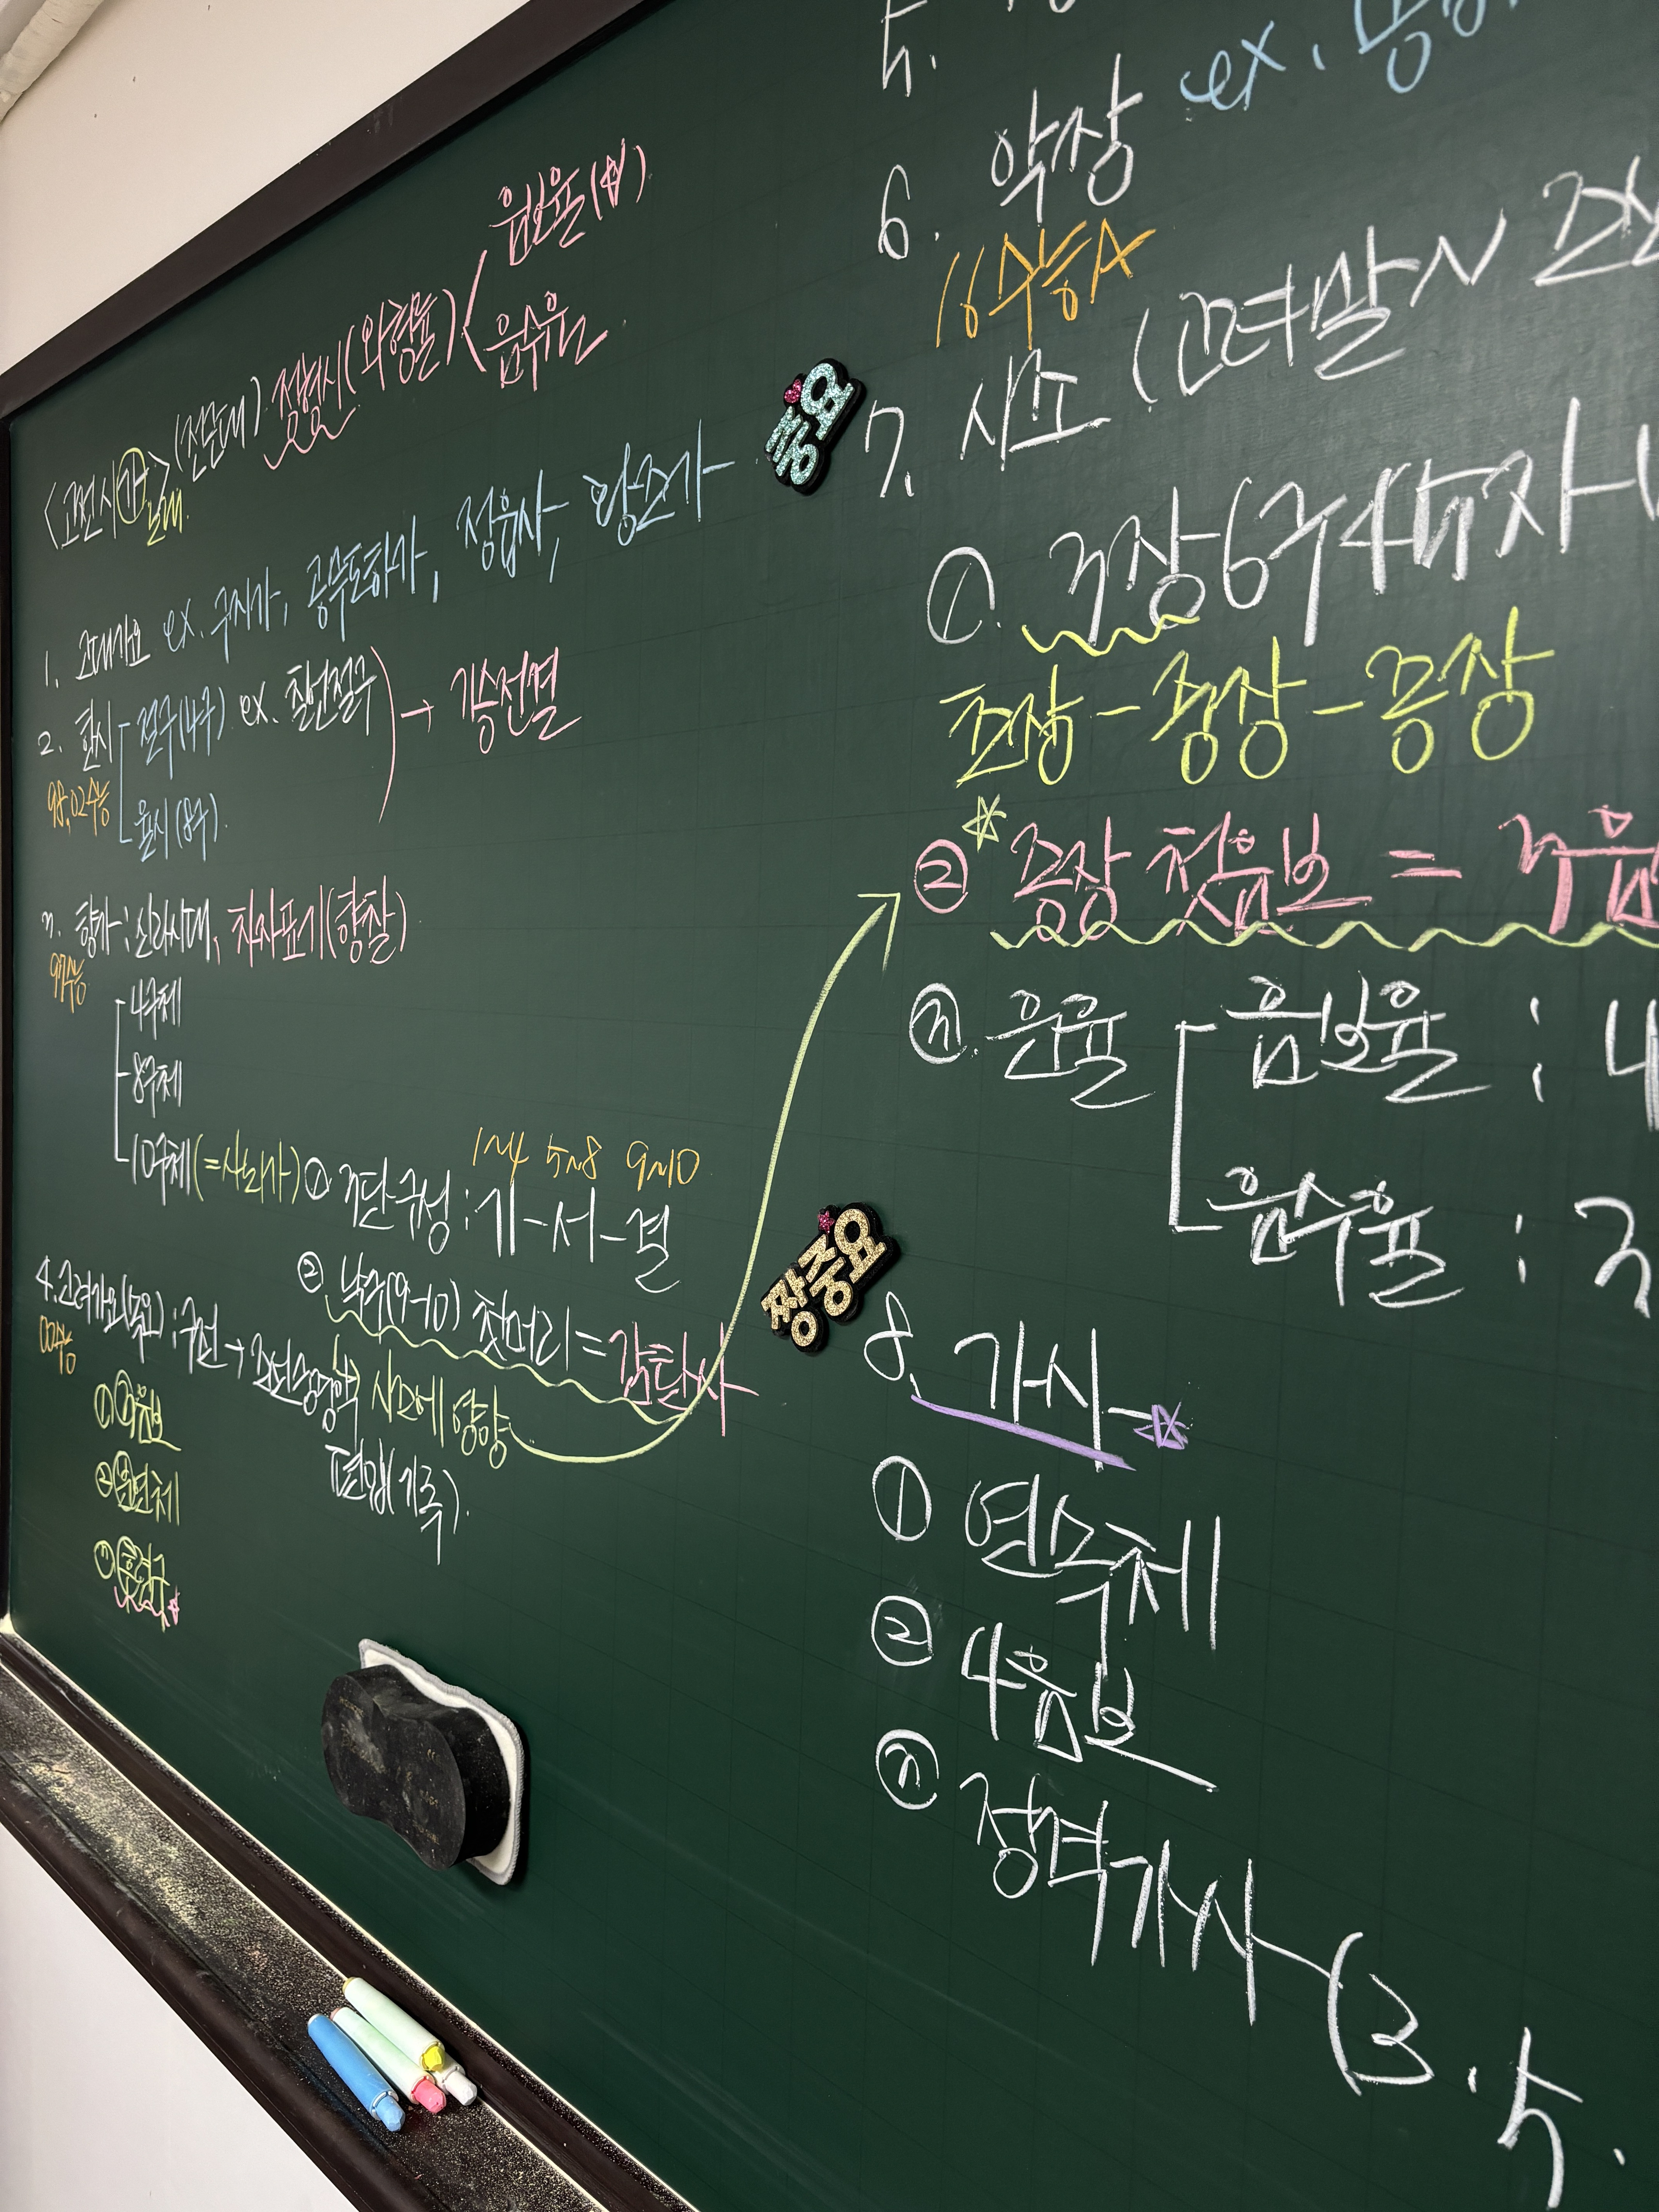 <고전시가> (전문대) 정형시(외형률) < 음보율(☆)
음수율
노래
1. 고대가요 ex. 구지가, 공무도하가, 정읍사, 황조가
2. 한시 절구(4구) ex. 칠언절구 → 기승전결
98, 02수능
율시(8구).
3. 향가 : 신라시대, 차자표기(향찰)
97수능
4구체
8구체
10구체(=사뇌가) ① 3단구성 : 기-서-결
1~4 5~8 9~10
② 낙구(9~10) 첫머리 = 감탄사
시조에 영향
4. 고려가요(속요) : 구전 →
00수능
편입(기록).
① 3음보
② 분연체
③ 후렴구☆
중요
5.
6. 악장 ex.
16수능A
7. 시조 (고려말~
① 3장6구4
초장-중장-종장
☆
② 종장 첫음보 = 3음
③ 운율 음보율 : 4
음수율 : 3
짱중요
8. 가사☆
① 연속체
② 4음보
③ 정격가사 (3.5.